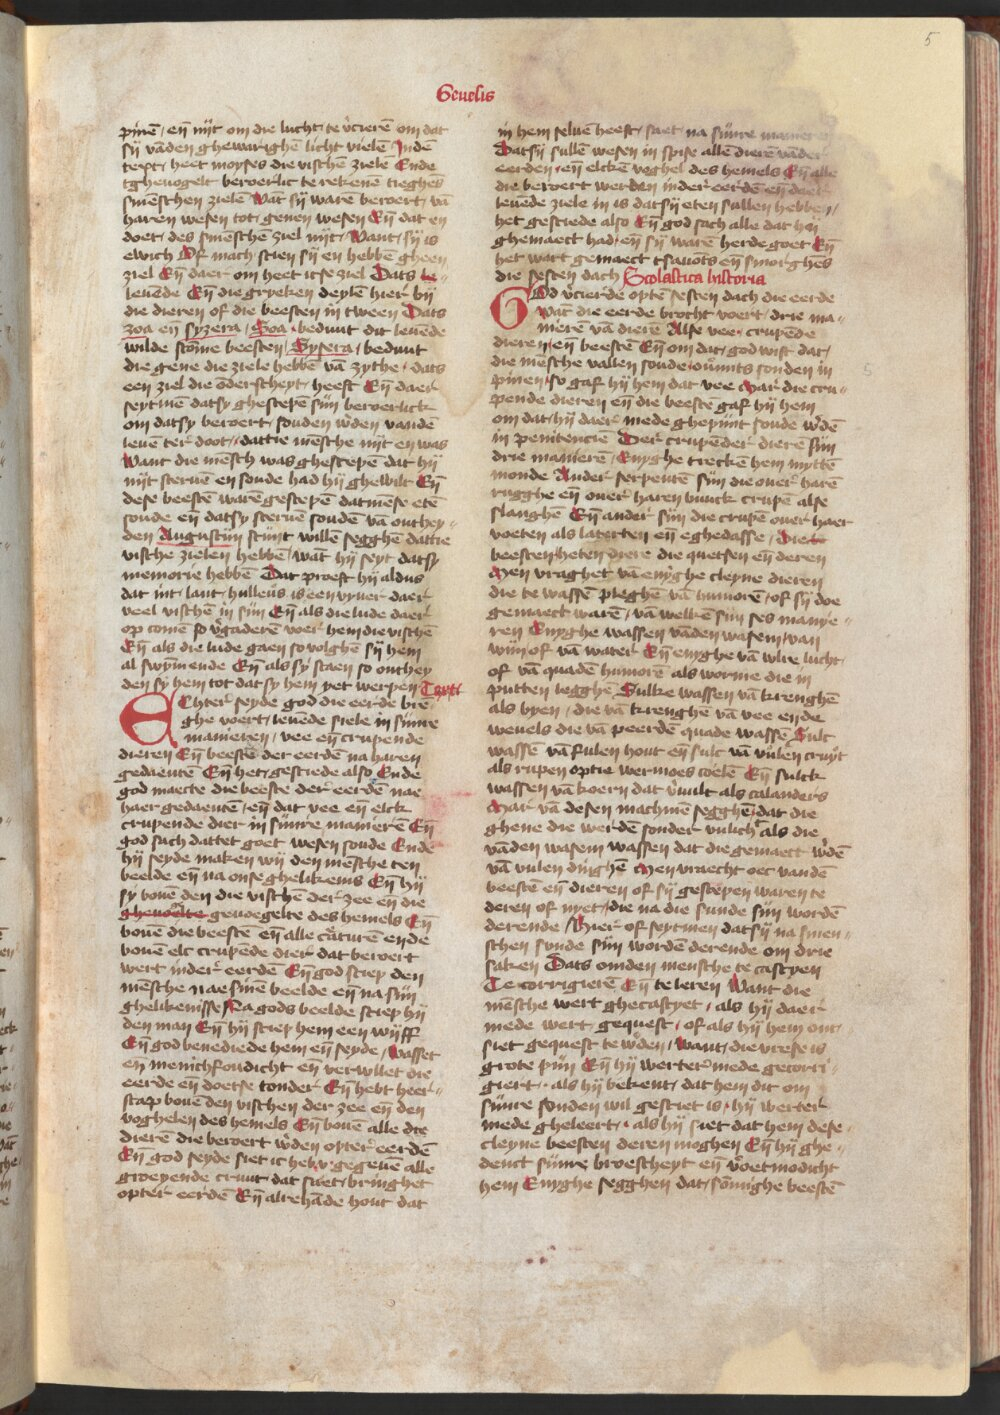 5
Genesis
pinē / en̄ nyt om die lucht / te v̓cierē om dat
sij vādēn ghewarighē licht vielē Indē
text / heet moyses die vischē zielē Ende
tghevogelt beroerlic te rekenē tieghēs
smēschen zielē Wāt sij ware beroert / vā
haren wesen tot genen wesen En̄ dat en
doet / des smēsche ziel nijt / Want / sij is
ewich Of mach stien sij en hebbē gheen
ziel En̄ daer om heet itse ziel Dats le
levēde En̄ die gryeken deylē hier bij
die dieren of die beesten in tween Dats
zoa en syzera / Soa / beduut dit levēde
wilde stōme beesten / Sysera / beduut
die gene die ziele hebbē vā zythe / dats
een ziel die ōderscheyt / heeft En̄ daer
seytmē datsy ghescepē sijn beroerlick
om datsy beroert / souden w̓den vandē
levē ter doot / dattie mēsche nijt en was
Want die mēsch was ghescepē dat hij
nijt stervē en soude had hij ghewilt En̄
dese beestē warē gescepē datmēse etē
soude en̄ datsy stervē soudē vā outhey
den Augustijn stijnt willē segghē dattie
vische zielen hebbē / wāt hij seyt datsy
memorie hebbē Dat proeft hij aldus
dat int / lant / hulleus is een vyver daer
veel vischē in sijn En̄ als die lude daer
op comē so v̓gaderē voer hem die vischē
En̄ als die lude gaen so volghē sij hem
al swȳmende En̄ als sy staen so onthey
den sij hem tot dat sy hem yet werpen Text
Echter seyde god die eerde brē
ghe voert / levēde siele in sijnre
manieren / vee en̄ crupende
dieren En̄ beestē der eerdē na haren
gedaentē En̄ het / gesciede also Ende
god maecte die beeste der eerdē nae
haer gedaentē / en̄ dat vee en̄ elck
crupende dier in sijnre manierē En̄
god sach dattet goet wesen soude Ende
hij seyde maken wij den mēsche ten
beelde en̄ na onse ghelikenis En̄ hij
sy bovē den die vischē der zee en̄ die
ghevoelte gevoegelte des hemels En̄
bovē die beestē en̄ alle c̄aturē ende
bovē elc crupēde dier dat beroert
wert inder eerdē En̄ god sciep den
mēsche nae sinē beelde en̄ na sijn
ghelikenisse / Na gods beelde sciep hij
den man En̄ hij sciep hem een wijff
En̄ god benediede hem en̄ seyde / Wasset
en menichfoudicht en vervllet die
eerde en̄ doetse tonder En̄ hebt heer
scap bovē den vischen der zee en̄ den
voghelen des hemels En̄ bovē alle die
dierē die beroert w̓den opter eerdē
En̄ god seyde siet ic heb v gegevē alle
groeyende cruut / dat saet / bringhet
opter eerdē En̄ alrehāde hout dat
in hem selvē heeft / saet / na sijnre manier
Datsij sullē wesen in spise allē dierē vāder
eerden / en̄ elckē voghel des hemels En̄ alle
die beroert werden inder eerdē en̄ daer
levēde ziele in is datsij eten sullen hebben /
het gesciede also En̄ god sach alle dat hij
ghemaect had / en̄ sij warē herde goet En̄
het wart gemaect tsavōts en̄ smorghēs
die sesten dach Scolastica historia
God v̓cierde optē sesten dach die eerde
Wāt die eerde brocht voert / drie ma
nierē vā dierē Alse vee / crupēde
dieren / en̄ beestē En̄ om dat / god wist dat /
die mēsche vallen soude ōmits sonden in
pinen / so gaf hij hem dat vee Mar die cru
pende dieren en̄ die beestē gaf hij hem
om dat / hij daer mede ghepijnt soude w̓dē
in penitencie Der crupēder dierē sijn
drie manierē / Enyghe treckē hem mytten
monde Ander serpentē sijn die over harē
rugghe en̄ over haren buuck crupē alse
slanghē En̄ ander sijn die crupē over haer
voeten als laterten en̄ eghedasse / Diet
beesten heten dyere die quetsen en̄ deren
Men vraghet vā enyghe cleyne dieren
die te wassē pleghē vā humorē / of sij doe
gemaect warē / vā welkē sijn ses manye
ren Enyghe wassen vāden wasem / van
wijn of vā water En̄ enyghe vā wlre lucht
of vā quadē humorē als worme die in
putten legghē Sulke wassen vā krenghē
als byen / die vā krenghē vā vee ende
wevels die vā peerdē quade wassē Sulc
wassē vā fulen hout en̄ sulc vā vulē cruyt
als rupen optie wermoes coelē En̄ sulck
wassen vā koern dat v̓vult als calanders
Mar vā desen machmē segghē dat die
ghene die werdē sonder vulich als die
vāden wasem wassen dat die gemaect w̓dē
vā vulen dinghē Men vraecht oec vandē
beestē en̄ dieren of sij gescepen waren te
deren of nyet / die na die sunde sijn wordē
derende / Hier of seytmen datsij na smen
schen sunde sijn wordē derende om drie
saken Dats omden mensche te castyen
Te corrigierē En̄ te leren Want die
mēsche wert ghecastyet / als hij daer
mede wert gequest / of als hij hem ont
siet gequest te w̓den / Want / die vrese is
grote pijn En̄ hij werter mede gecorri
giert / als hij bekent / dat hem dit om
sijnre sonden wil gesciet is / hij werter
mede gheleert / als hij siet dat hem dese
cleyne beesten deren moghen En̄ hij ghe
denct sijnre broescheyt en̄ v̓oetmodicht
hem Enyghe segghen dat / sōmighe beestē
5